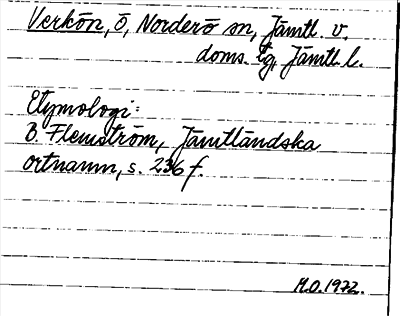 Verkön, ö, Norderö sn, Jämtl. v.
doms. tg, Jämtl. l.
Etymologi:
B. Flemström, Jämtländska
ortnamn, s. 236 f.
M.O. 1972.